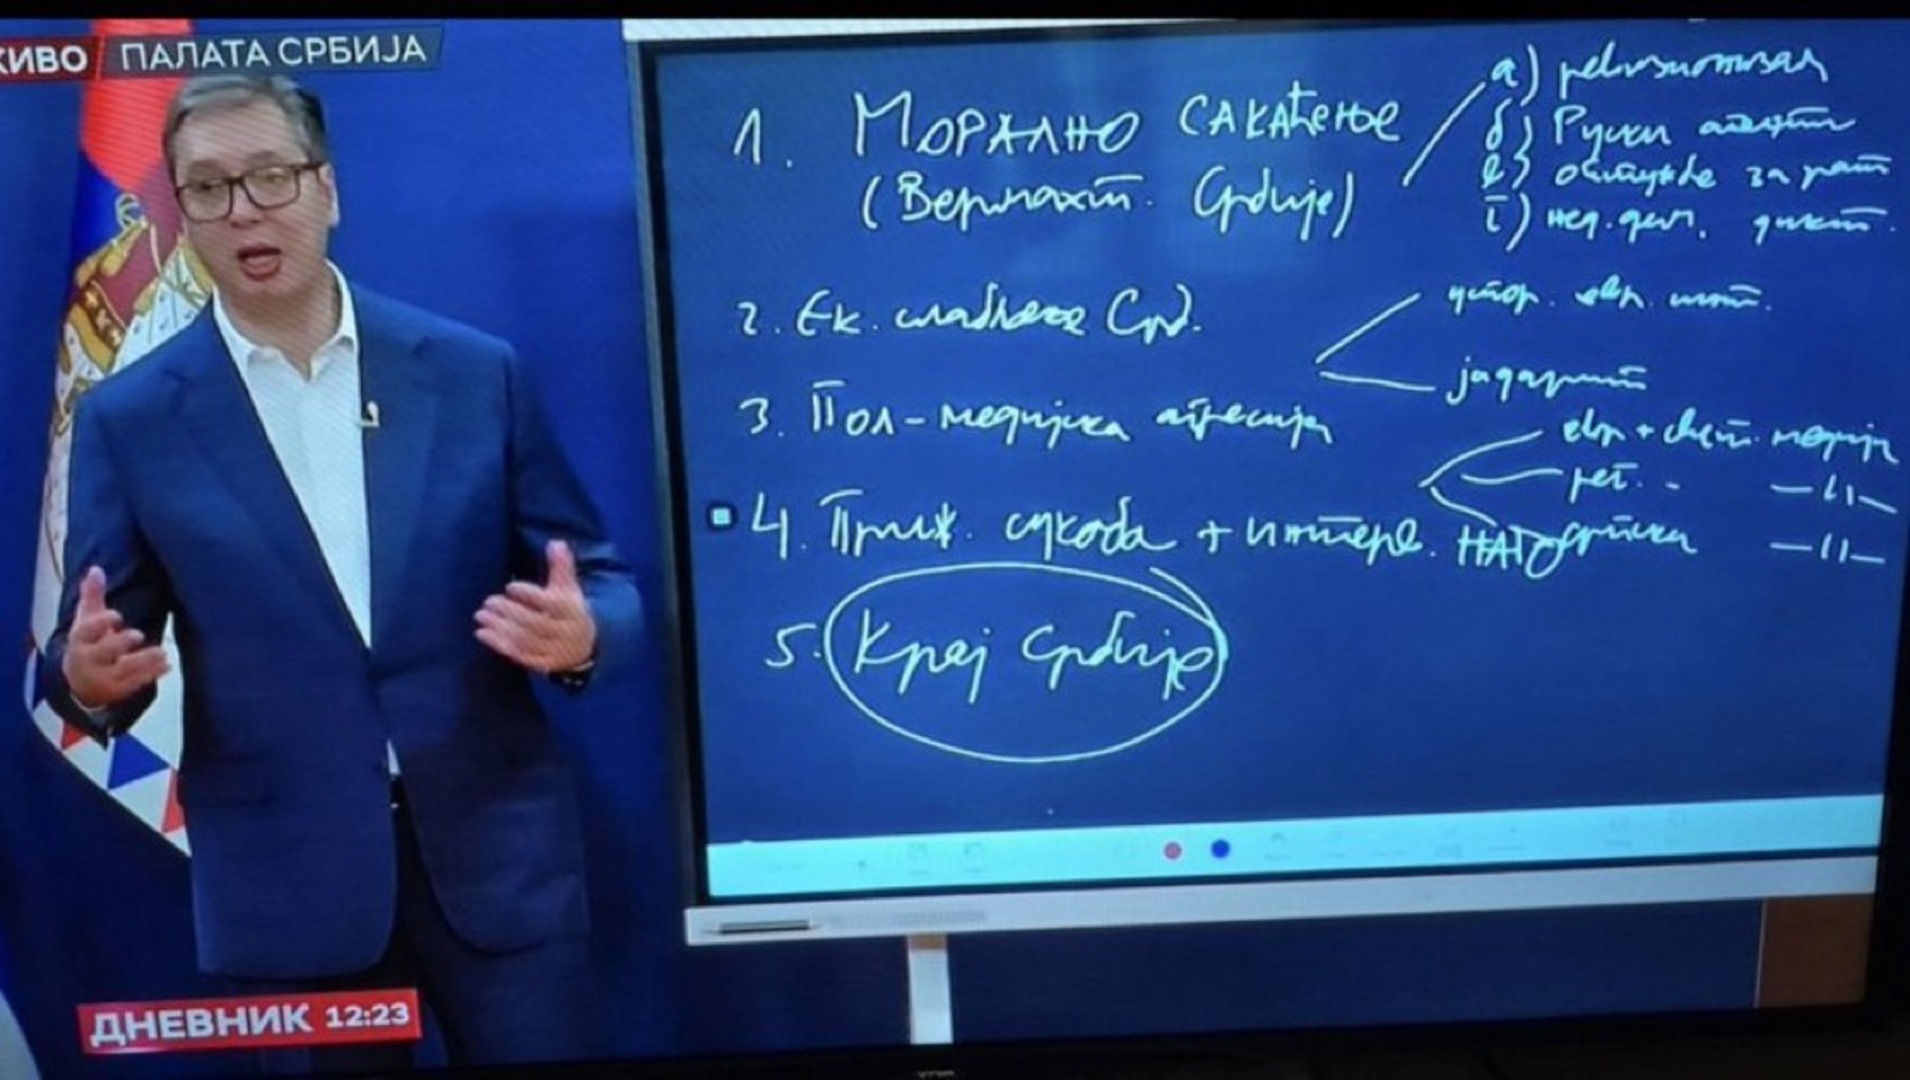 ЖИВО ПАЛАТА СРБИЈА
1. МОРАЛНО САКАЋЕЊЕ
(Вермахт. Србије)
а) ревизионизам
б) Руски агенти
в) оптужбе за рат
г) нед. дем. дикт.
2. Ек. слабљење Срб.
јадарит
3. Пол-медијска агресија
евр + свет. медији
рег. - —11—
српски —11—
4. Приж. сукоба + интерв. НАТО
5. Крај Србије
ДНЕВНИК 12:23